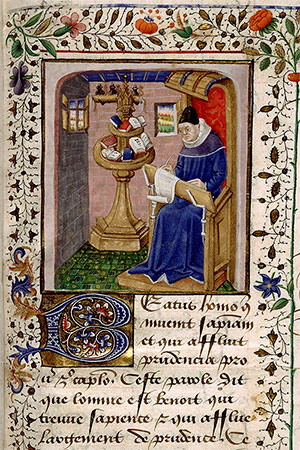 Beatus homo q
invenit sapiam
et qui affluit
prudencia pro
caplo. Ceste parole dit
que lomme est benoit qui
treuve sapience & qui afflue
largement de prudence Ce